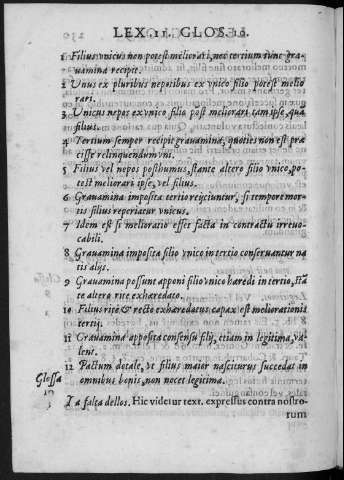 LEX II. GLOS. 10.
1 Filius vnicus non potest meliorari, nec tertium tunc gra-
uamina recipit.
2 Vnus ex pluribus nepotibus ex vnico filio potest melio
rari.
3 Vnicus nepos ex vnico filio post meliorari tam ipse, quā
filius.
4 Tertium semper recipit grauamina, quoties non est præ
cisse relinquendum vni.
5 Filius vel nepos posthumus, stante altero filio vnico, po-
test meliorari ipse, vel filius.
6 Grauamina imposita tertio reijciuntur, si tempore mor-
tis filius reperiatur vnicus.
7 Idem est si melioratio esset facta in contractu irreuo-
cabili.
8 Grauamina imposita filio vnico in tertio conseruantur na
tis alijs.
9 Grauamina possunt apponi filio vnico hæredi in tertio, stā
te altero rite exhæredato.
10 Filius rite & recto exhæredatus capax est meliorationis
tertij.
11 Grauamina apposita consensu filij, etiam in legitima, va-
lent.
12 Pactum dotale, vt filius maior nasciturus succedat in
omnibus bonis, non nocet legitima.
Glossa
La falta dellos. Hic videtur text. expressus contra nostro-
rum